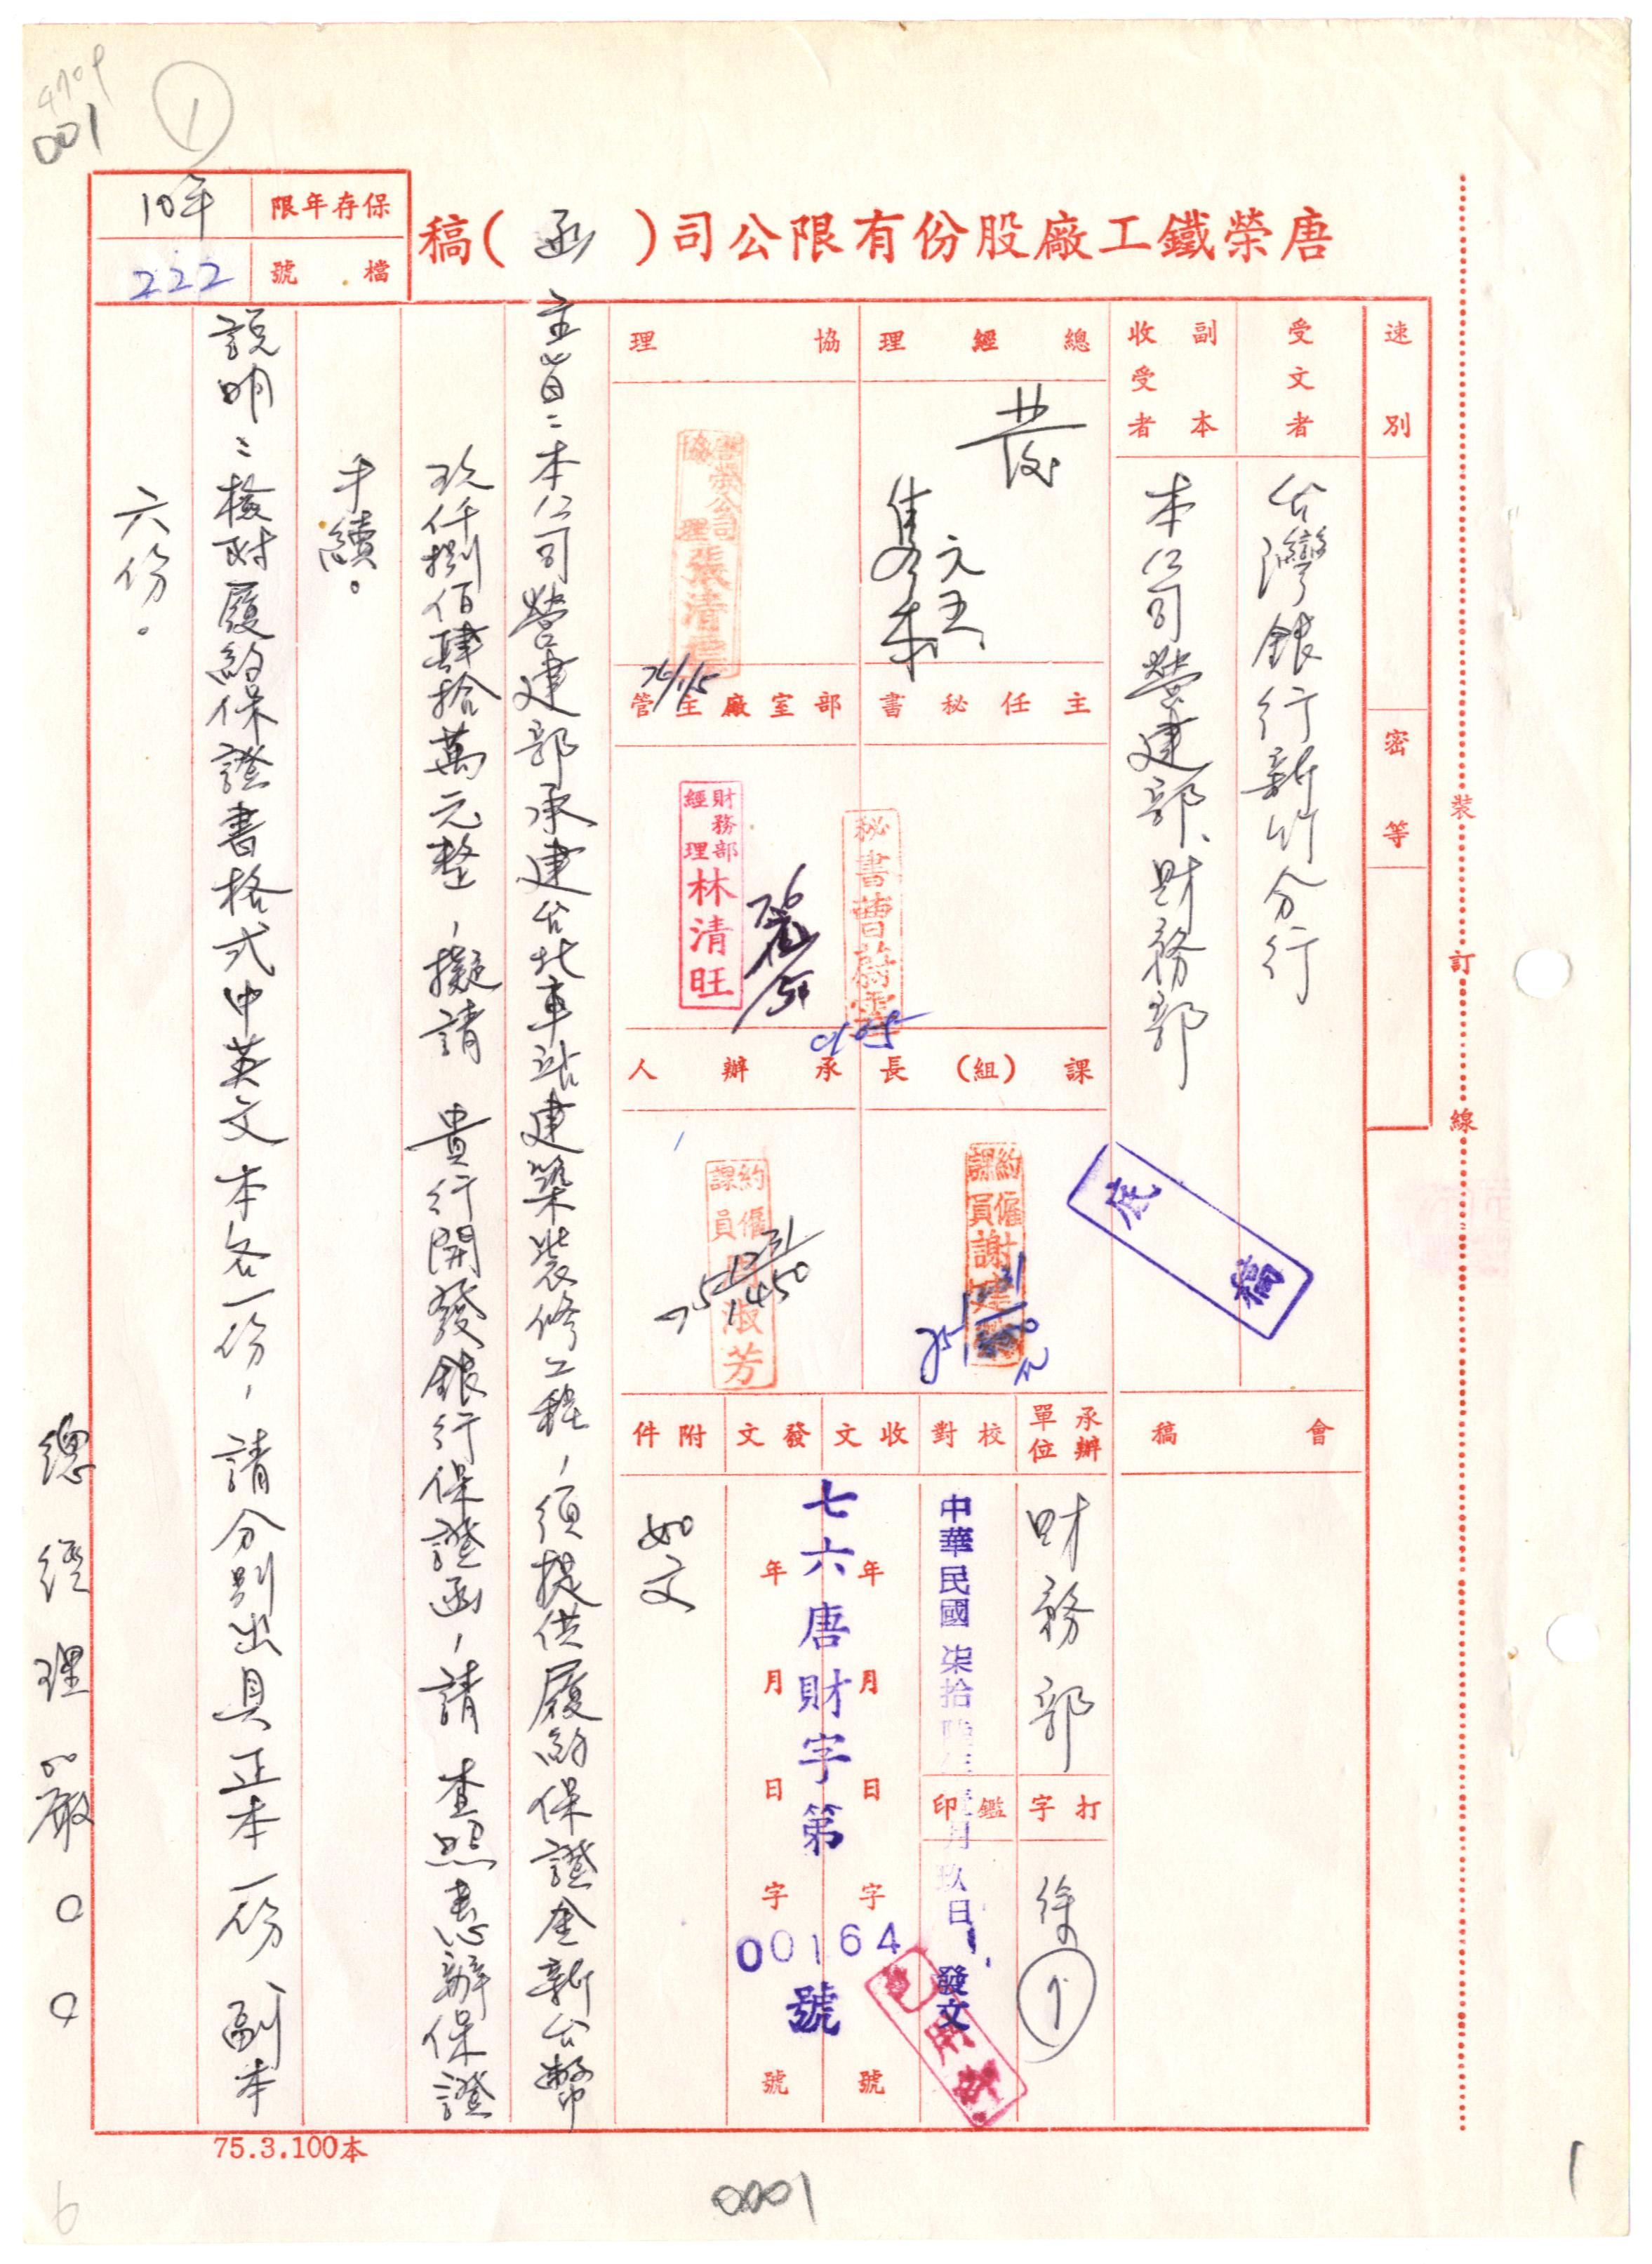 4709
001
1
保存年限
10年
檔號
222
唐榮鐵工廠股份有限公司(函)稿
速別
密等
受文者
台灣銀行新竹分行
副本收受者
本公司營建部、財務部
底稿
會稿
總經理
發
協理
唐榮公司協理張清
76/1/5
主任秘書
秘書曹蔚雲
0105
部室廠主管
財務部經理林清旺
課(組)長
約僱課員謝建
承辦人
約僱課員 淑芳
75 12 31 1450
承辦單位
財務部
打字
徐
校對
鑑印
中華民國柒拾陸年壹月玖日發文
收文
年月日字號
發文
年月日字號
七六唐財字第00164號
附件
如文
主旨:本公司營建部承建台北車站建築裝修工程,須提供履約保證金新台幣
玖仟捌佰肆拾萬元整,擬請 貴行開發銀行保證函,請 查照惠辦保證
手續。
說明:檢附履約保證書格式中英文本各一份,請分別出具正本一份、副本
六份。
總經理嚴○○
裝訂線
75.3.100本
0001
1
6